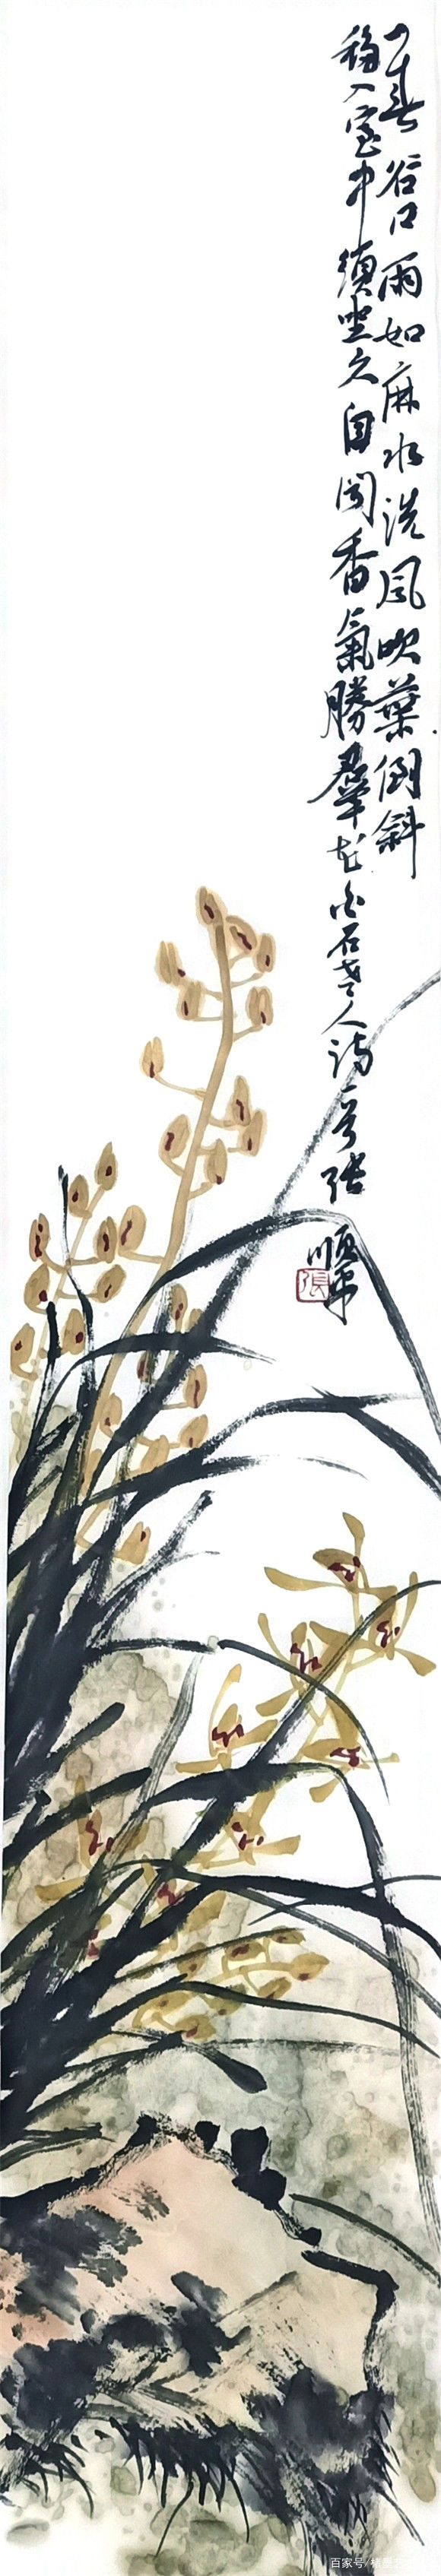 一春谷口雨如麻水洗風吹葉倒斜
移入室中須坐久自聞香氣勝羣花白石老人詩一首張
順
張
百家号/